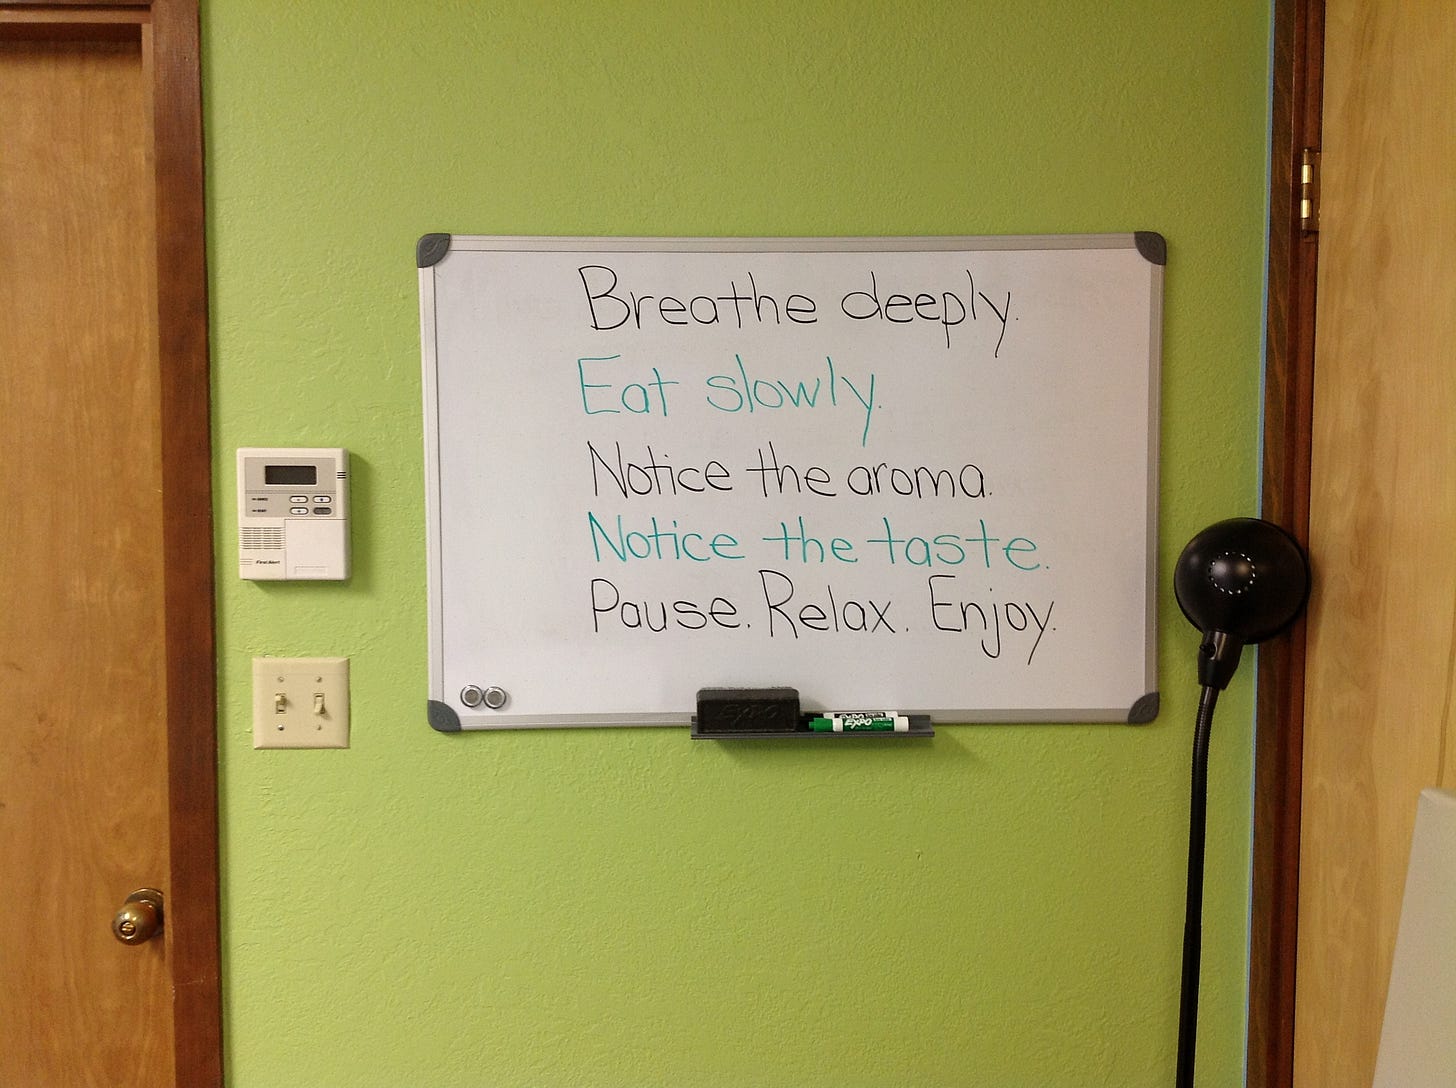 Breathe deeply.
Eat slowly.
Notice the aroma.
Notice the taste.
Pause. Relax. Enjoy.
First Alert
EXPO
EXPO
EXPO